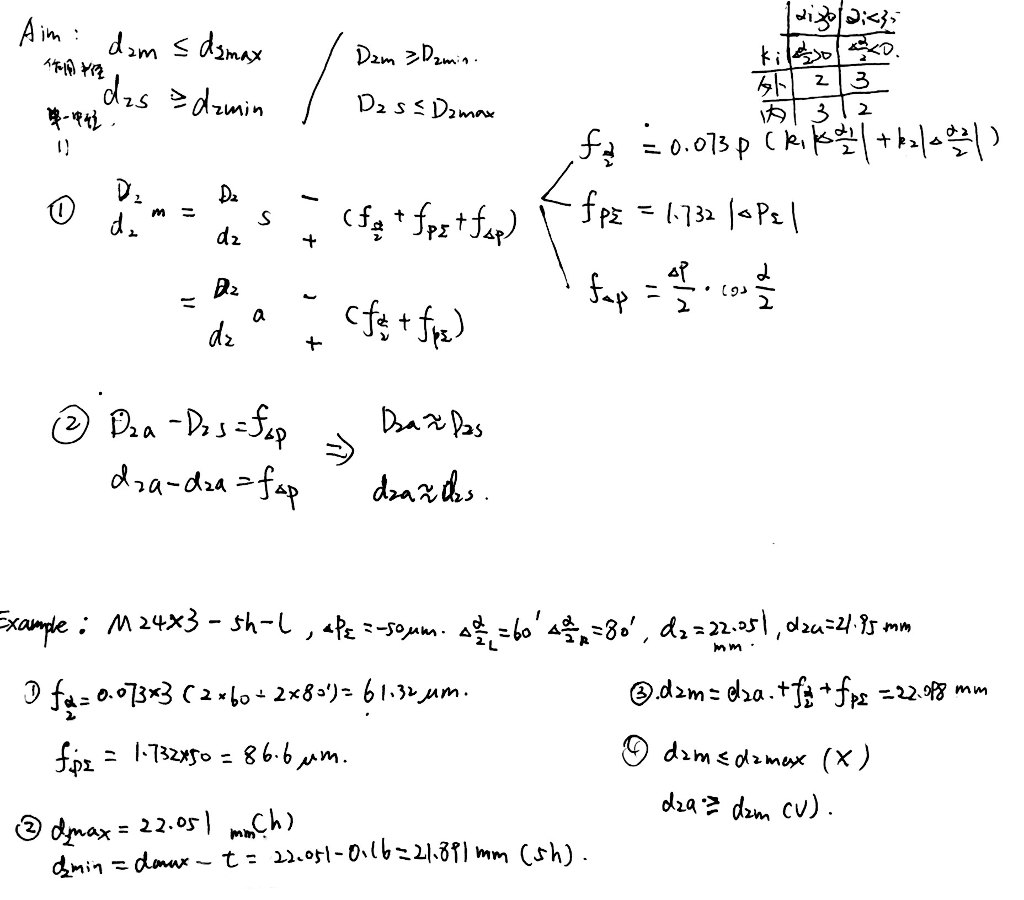 Aim: d₂m ≤ d₂max / D₂m ≥ D₂min.
作用中径
d₂s ≥ d₂min D₂s ≤ D₂max
单一中径
Ki Δα/2>0 Δα/2<0.
外 2 3
内 3 2
① D₂/d₂ m = D₂/d₂ s -/+ (fα/2 + fPΣ + fΔP)
= D₂/d₂ a -/+ (fα/2 + fPΣ)
fα/2 = 0.073P (k₁|Δα₁/2| + k₂|Δα₂/2|)
fPΣ = 1.732 |ΔPΣ|
fΔP = ΔP/2 · cos α/2
② D₂a - D₂s = fΔP ⇒ D₂a ≈ D₂s
d₂a - d₂a = fΔP d₂a ≈ d₂s.
Example: M24×3 - 5h - L, ΔPΣ = -50μm. Δα/2 L = 60′ Δα/2 R = 80′, d₂ = 22.051 mm, d₂a = 21.95 mm
① fα/2 = 0.073×3 (2×60 + 2×80′) = 61.32 μm.
fPΣ = 1.732×50 = 86.6 μm.
② d₂max = 22.051 mm (h)
d₂min = dmax - t = 22.051 - 0.16 = 21.891 mm (5h).
③. d₂m = d₂a. + fα/2 + fPΣ = 22.098 mm
④ d₂m ≤ d₂max (X)
d₂a ≥ d₂m (V).